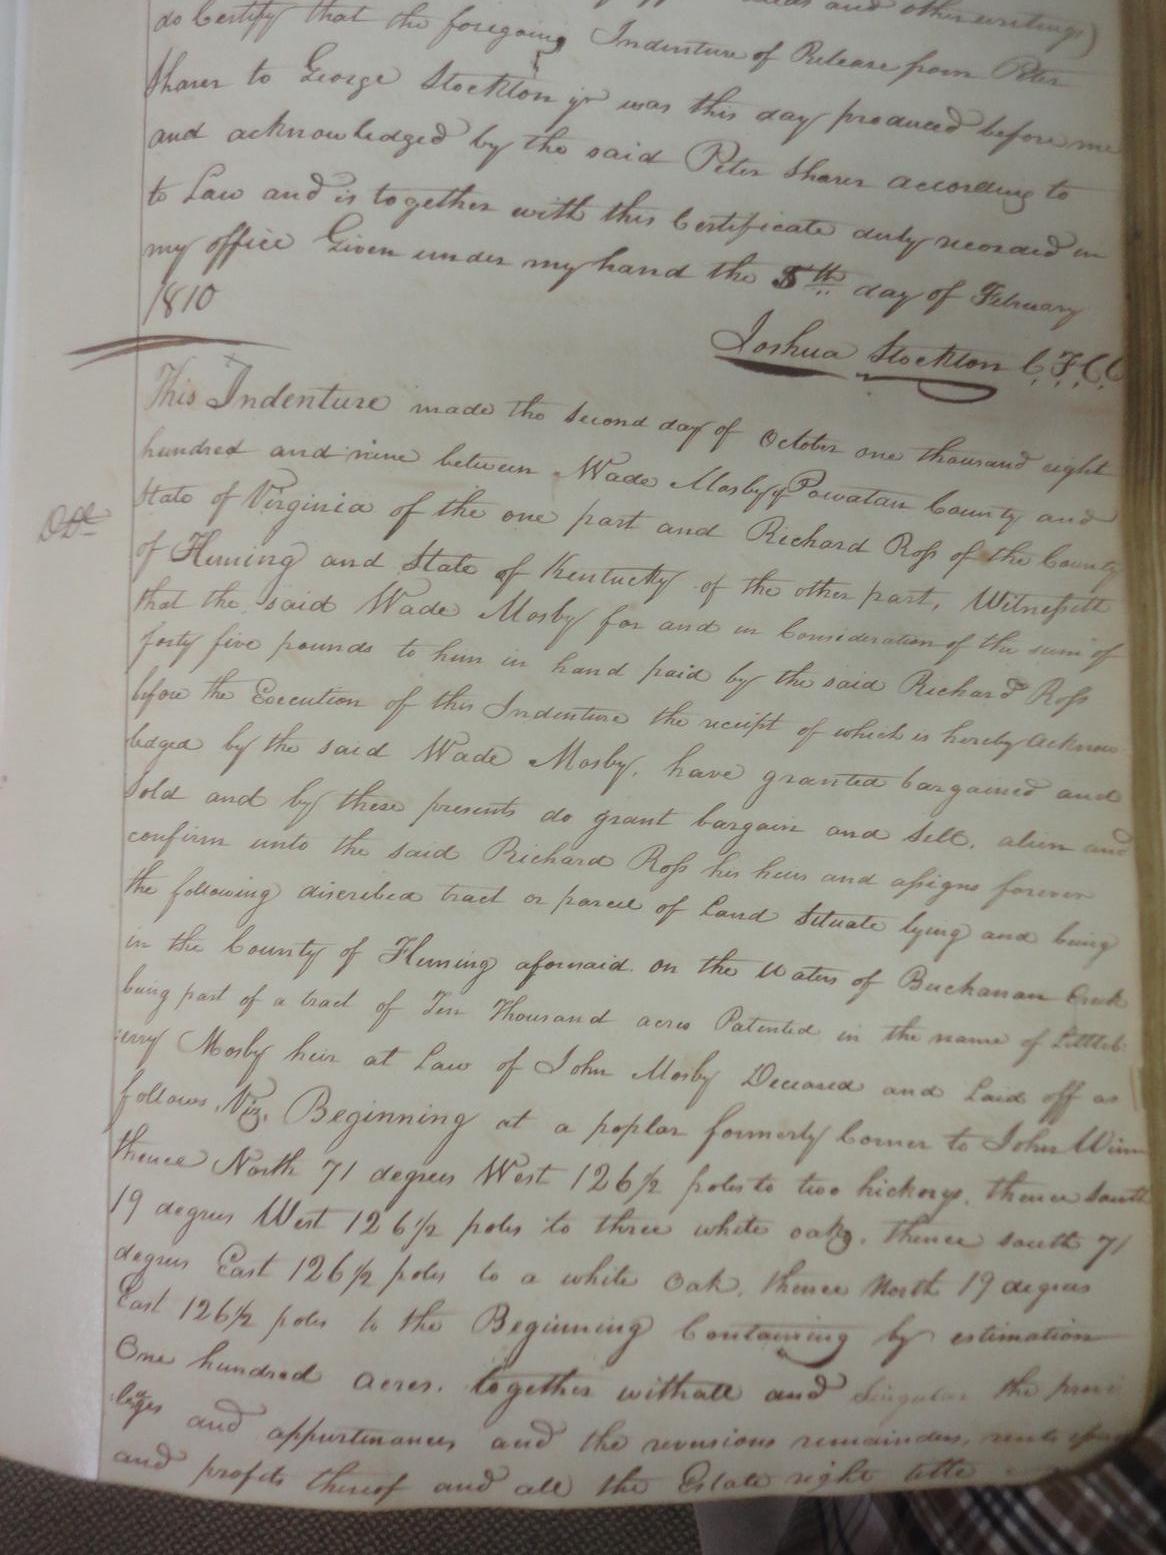 and other writings)
do Certify that the foregoing Indenture of Release from Peter
Sharer to George Stockton jr was this day produced before me
and acknowledged by the said Peter Sharer according to
to Law and is together with this Certificate duly recorded in
my office Given under my hand the 5th day of February
1810
Joshua Stockton C.F.C.C
This Indenture made the second day of October one thousand eight
hundred and nine between Wade Mosby of Powatan County and
State of Virginia of the one part and Richard Ross of the County
of Fleming and State of Kentucky of the other part, Witnesseth
that the said Wade Mosby for and in Consideration of the sum of
forty five pounds to him in hand paid by the said Richard Ross
before the Execution of this Indenture the receipt of which is hereby acknow
ledged by the said Wade Mosby, have granted bargained and
sold and by these presents do grant bargain and sell, alien and
confirm unto the said Richard Ross his heirs and assigns forever
the following discribed tract or parcel of Land situate lying and being
in the County of Fleming aforesaid on the Waters of Buchanan Creek
being part of a tract of Ten Thousand acres Patented in the name of Littleb
erry Mosby heir at Law of John Mosby Deceased and Laid off as
follows, Viz, Beginning at a poplar formerly Corner to John Winn
thence North 71 degrees West 126½ poles to two hickorys, thence South
19 degrees West 126½ poles to three white oaks, thence south 71
degrees East 126½ poles to a white Oak, thence North 19 degrees
East 126½ poles to the Beginning Containing by estimation
One hundred acres, together withall and Singular the privi
leges and appurtenances and the revusions remainders, rents
and profits thereof and all the Estate right title